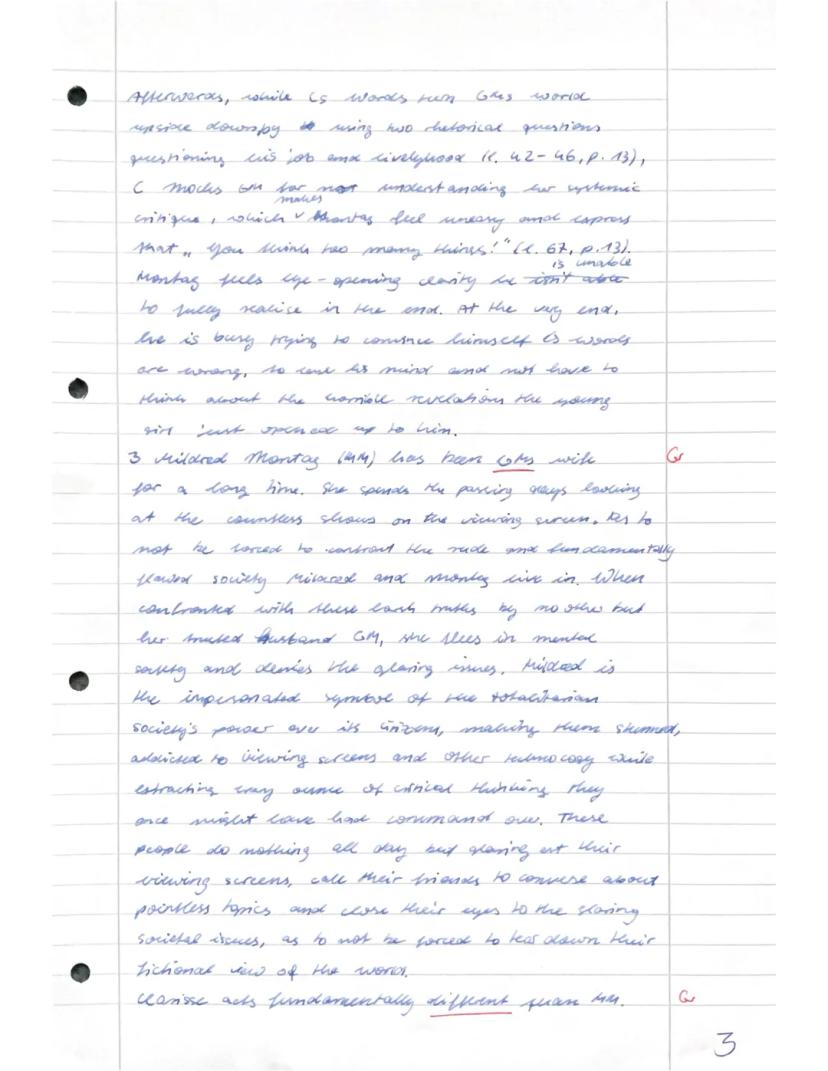 Afterwards, while Cs words turn GMs world
upside down by using two rhetorical questions
questioning his job and livelyhood (l. 42-46, p. 13),
C mocks GM for not understanding her systemic
critique, which makes Montag feel uneasy and express
that „You think too many things!" (l. 67, p. 13).
Montag feels eye-opening clarity he isn't able is unable
to fully realise in the end. At the very end,
he is busy trying to convince himself Cs words
are wrong, to ease his mind and not have to
think about the horrible revelations the young
girl just opened up to him.
3 Mildred Montag (MM) has been GMs wife
for a long time. She spends the passing days looking
at the countless shows on the viewing screen, as to
not be forced to confront the rude and fundamentally
flawed society Mildred and Montag live in. When
confronted with these harsh truths by no other but
her trusted husband GM, she flees in mental
safety and denies the glaring issues. Mildred is
the impersonated symbol of the totalitarian
society's power over its citizens, making them stunned,
addicted to viewing screens and other technology while
extracting every ounce of critical thinking they
once might have had command over. These
people do nothing all day but glaring at their
viewing screens, call their friends to converse about
pointless topics and close their eyes to the glaring
societal issues, as to not be forced to tear down their
fictional view of the world.
Clarisse acts fundamentally different than MM.
Gr
Gr
3